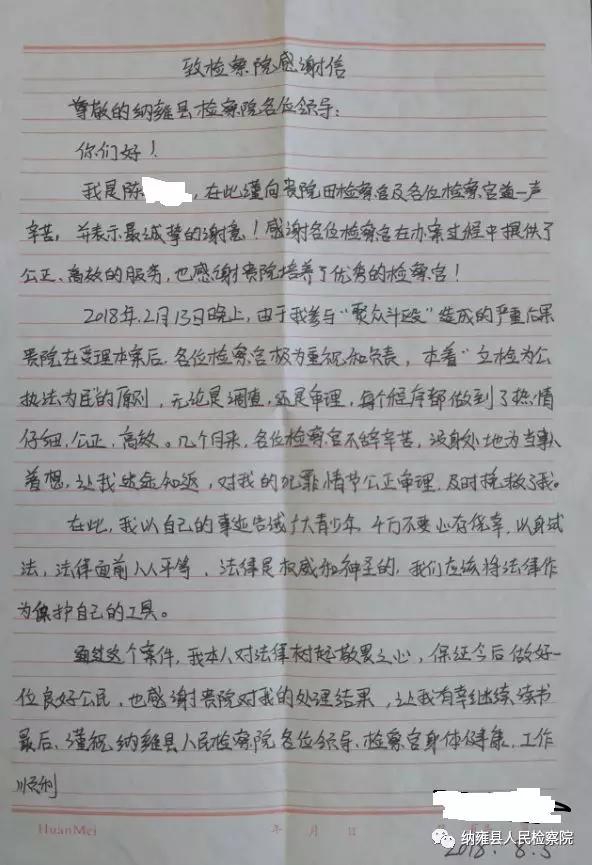 致检察院感谢信
尊敬的纳雍县检察院各位领导：
你们好！
我是陈 ，在此谨向贵院田检察官及各位检察官道一声
辛苦，并表示最诚挚的谢意！感谢各位检察官在办案过程中提供了
公正、高效的服务，也感谢贵院培养了优秀的检察官！
2018年2月13日晚上，由于我参与“聚众斗殴”造成的严重后果
贵院在受理本案后，各位检察官极为重视和负责，本着“立检为公
执法为民”的原则，无论是调查，还是审理，每个程序都做到了热情
仔细，公正，高效。几个月来，各位检察官不辞辛苦，设身处地为当事人
着想，让我迷途知返，对我的犯罪情节公正审理，及时挽救了我。
在此，我以自己的事迹告诫广大青少年，千万不要心存侥幸，以身试
法，法律面前人人平等，法律是权威和神圣的，我们应该将法律作
为保护自己的工具。
通过这个案件，我本人对法律树起敬畏之心，保证今后做好一
位良好公民，也感谢贵院对我的处理结果，让我有幸继续读书
最后，谨祝纳雍县人民检察院各位领导、检察官身体健康，工作
顺利
HuanMei 年 月 日
2018. 8.3
纳雍县人民检察院